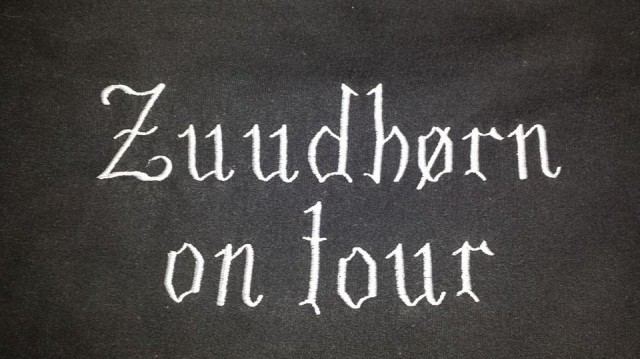 Zuudhørn
on tour